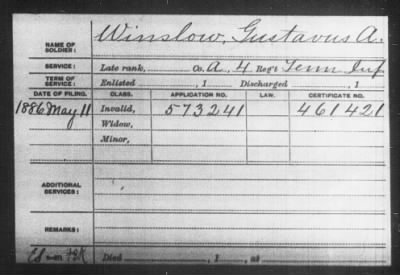 NAME OF SOLDIER: Winslow, Gustavus A.
SERVICE: Late rank, Co. A, 4 Reg't Tenn Inf
TERM OF SERVICE: Enlisted , 1 Discharged , 1
DATE OF FILING. CLASS. APPLICATION NO. LAW. CERTIFICATE NO.
1886 May 11 Invalid, 573241 461421
Widow,
Minor,
ADDITIONAL SERVICES:
REMARKS:
Died , 1 , at